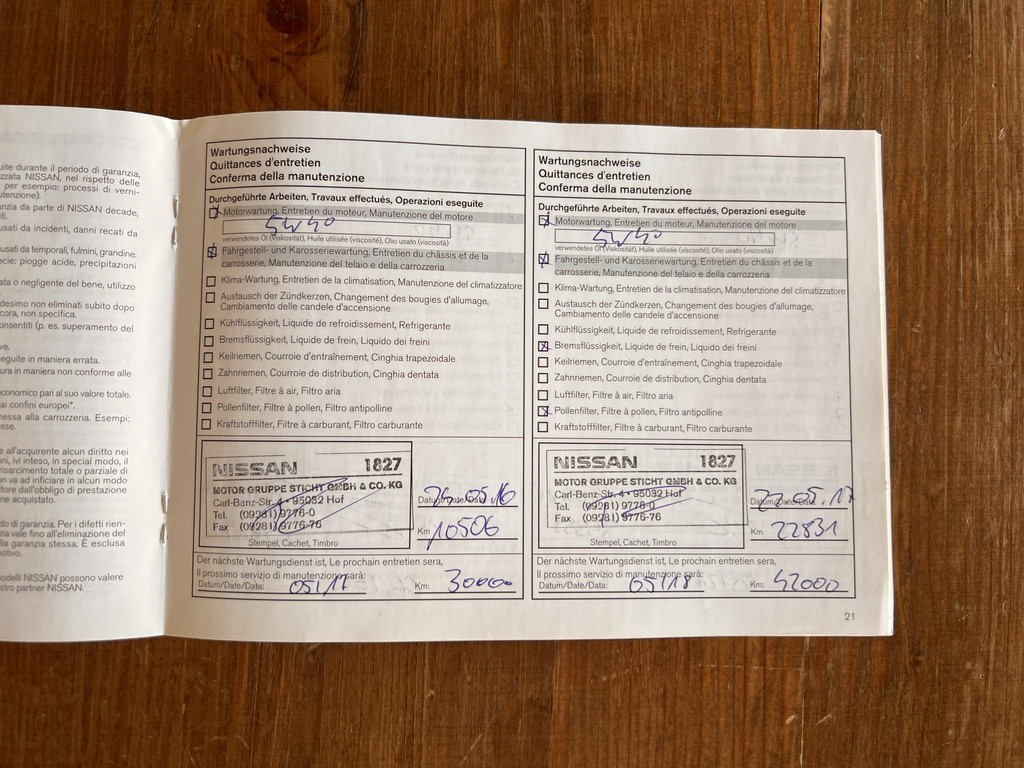 uite durante il periodo di garanzia,
zzata NISSAN, nel rispetto delle
per esempio: processi di verni-
utenzione).
nzia da parte di NISSAN decade,
ti.
usati da incidenti, danni recati da
usati da temporali, fulmini, grandine.
ecie: piogge acide, precipitazioni
ata o negligente del bene, utilizzo
desimo non eliminati subito dopo
cora, non specifica.
onsentiti (p. es. superamento del
ve.
eguite in maniera errata.
ura in maniera non conforme alle
economico pari al suo valore totale.
ai confini europei*.
nessa alla carrozzeria. Esempi:
sse.
e all'acquirente alcun diritto nei
oni, ivi inteso, in special modo, il
nsarcimento totale o parziale di
n va ad inficiare in alcun modo
tore dall'obbligo di prestazione
ne acquistato.
do di garanzia. Per i difetti rien-
zia vale fino all'eliminazione del
lla garanzia stessa. È esclusa
otivo.
odelli NISSAN possono valere
stro partner NISSAN.
Wartungsnachweise
Quittances d'entretien
Conferma della manutenzione
Durchgeführte Arbeiten, Travaux effectués, Operazioni eseguite
Motorwartung, Entretien du moteur, Manutenzione del motore
5W40
verwendetes Öl (Viskosität), Huile utilisée (viscosité), Olio usato (viscosità)
Fahrgestell- und Karosseriewartung, Entretien du châssis et de la
carrosserie, Manutenzione del telaio e della carrozzeria
Klima-Wartung, Entretien de la climatisation, Manutenzione del climatizzatore
Austausch der Zündkerzen, Changement des bougies d'allumage,
Cambiamento delle candele d'accensione
Kühlflüssigkeit, Liquide de refroidissement, Refrigerante
Bremsflüssigkeit, Liquide de frein, Liquido dei freini
Keilriemen, Courroie d'entraînement, Cinghia trapezoidale
Zahnriemen, Courroie de distribution, Cinghia dentata
Luftfilter, Filtre à air, Filtro aria
Pollenfilter, Filtre à pollen, Filtro antipolline
Kraftstofffilter, Filtre à carburant, Filtro carburante
NISSAN 1827
MOTOR GRUPPE STICHT GMBH & CO. KG
Carl-Benz-Str. 4 • 95032 Hof
Tel. (09281) 9776-0
Fax (09281) 9776-76
Stempel, Cachet, Timbro
Datum/Date/Data: 05.16
Km 10506
Der nächste Wartungsdienst ist, Le prochain entretien sera,
Il prossimo servizio di manutenzione sarà:
Datum/Date/Data: 05/17 Km: 30000
Wartungsnachweise
Quittances d'entretien
Conferma della manutenzione
Durchgeführte Arbeiten, Travaux effectués, Operazioni eseguite
Motorwartung, Entretien du moteur, Manutenzione del motore
5W40
verwendetes Öl (Viskosität), Huile utilisée (viscosité), Olio usato (viscosità)
Fahrgestell- und Karosseriewartung, Entretien du châssis et de la
carrosserie, Manutenzione del telaio e della carrozzeria
Klima-Wartung, Entretien de la climatisation, Manutenzione del climatizzatore
Austausch der Zündkerzen, Changement des bougies d'allumage,
Cambiamento delle candele d'accensione
Kühlflüssigkeit, Liquide de refroidissement, Refrigerante
Bremsflüssigkeit, Liquide de frein, Liquido dei freini
Keilriemen, Courroie d'entraînement, Cinghia trapezoidale
Zahnriemen, Courroie de distribution, Cinghia dentata
Luftfilter, Filtre à air, Filtro aria
Pollenfilter, Filtre à pollen, Filtro antipolline
Kraftstofffilter, Filtre à carburant, Filtro carburante
NISSAN 1827
MOTOR GRUPPE STICHT GMBH & CO. KG
Carl-Benz-Str. 4 • 95032 Hof
Tel. (09281) 9776-0
Fax (09281) 9776-76
Stempel, Cachet, Timbro
Datum/Date/Data: 22.05.17
Km 22831
Der nächste Wartungsdienst ist, Le prochain entretien sera,
Il prossimo servizio di manutenzione sarà:
Datum/Date/Data: 05/18 Km: 42000
21